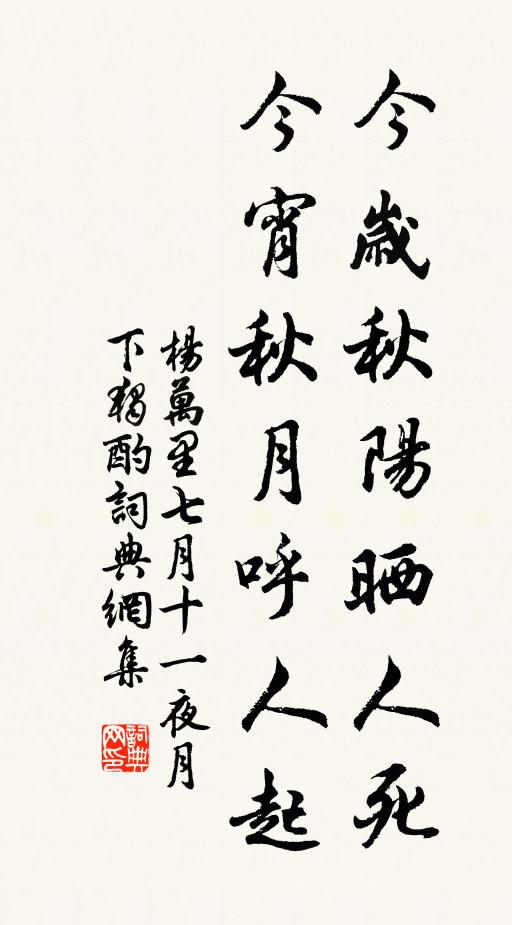 今歲秋陽晒人死
今宵秋月呼人起
楊萬里七月十一夜月
下獨酌詞典網集
詞典
网印